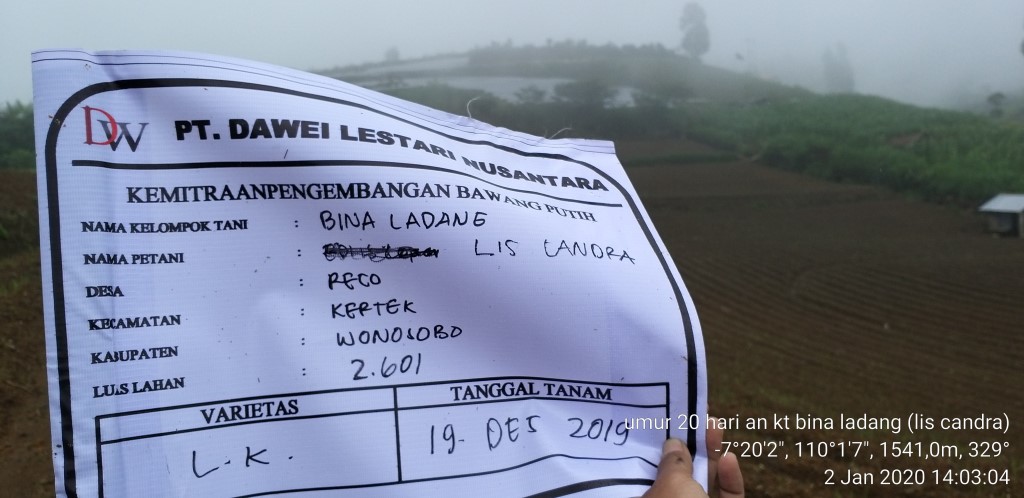 DW PT. DAWEI LESTARI NUSANTARA
KEMITRAANPENGEMBANGAN BAWANG PUTIH
NAMA KELOMPOK TANI : BINA LADANG
NAMA PETANI : LIS CANDRA
DESA : RECO
KECAMATAN : KERTEK
KABUPATEN : WONOSOBO
LUAS LAHAN : 2.601
VARIETAS TANGGAL TANAM
L.K. 19- DES 2019
umur 20 hari an kt bina ladang (lis candra)
-7°20'2", 110°1'7", 1541,0m, 329°
2 Jan 2020 14:03:04